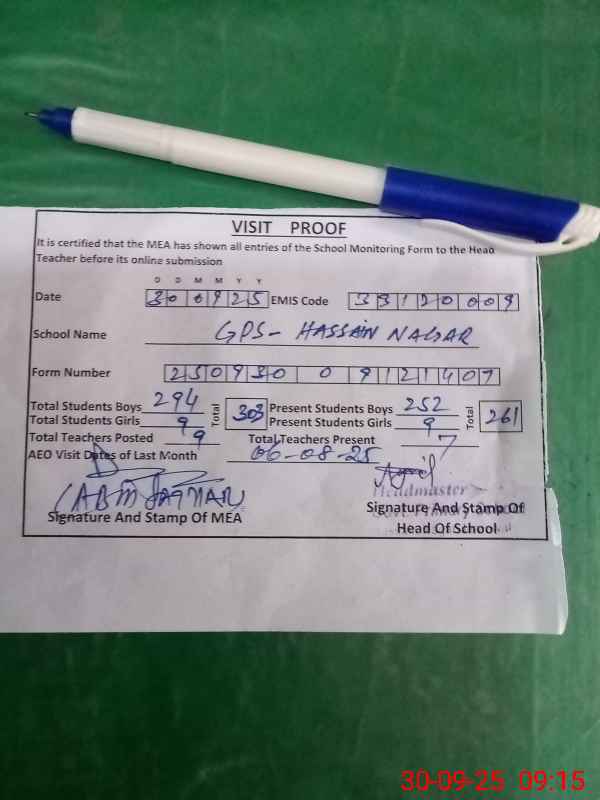 VISIT PROOF
It is certified that the MEA has shown all entries of the School Monitoring Form to the Head
Teacher before its online submission
D D M M Y Y
Date 300925 EMIS Code 33120009
School Name GPS - HASSAIN NAGAR
Form Number 250930 0 9121407
Total Students Boys 294 Total 303 Present Students Boys 252 Total 261
Total Students Girls 9 Present Students Girls 9
Total Teachers Posted 9 Total Teachers Present 7
AEO Visit Dates of Last Month 06-08-25
Headmaster
Signature And Stamp Of MEA Signature And Stamp Of
Head Of School
30-09-25 09:15